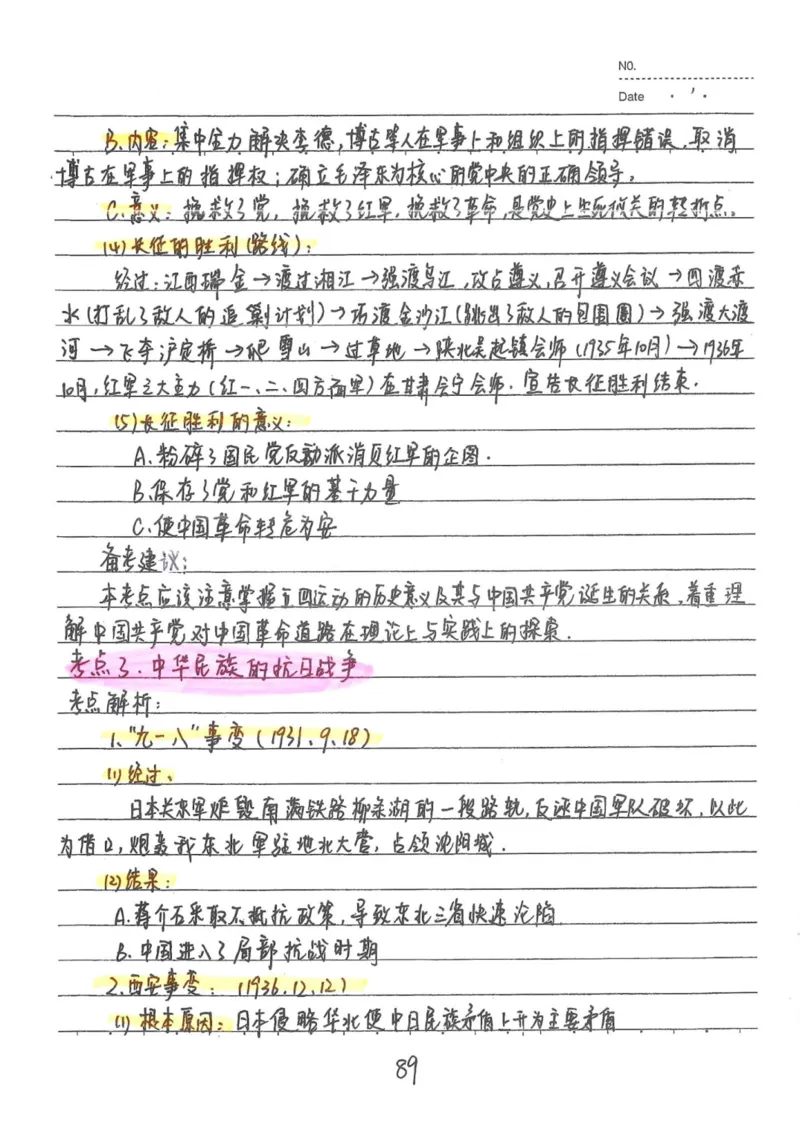 NO.
Date
B.内容:集中全力解决李德,博古等人在军事上和组织上的指挥错误.取消
博古在军事上的指挥权;确立毛泽东为核心的党中央的正确领导。
C.意义:挽救了党,挽救了红军,挽救了革命,是党史上生死攸关的转折点。
(4)长征的胜利(路线):
经过:江西瑞金→渡过湘江→强渡乌江,攻占遵义,召开遵义会议→四渡赤
水(打乱了敌人的追剿计划)→巧渡金沙江(跳出了敌人的包围圈)→强渡大渡
河→飞夺泸定桥→爬雪山→过草地→陕北吴起镇会师(1935年10月)→1936年
10月,红军三大主力(红一、二、四方面军)在甘肃会宁会师.宣告长征胜利结束.
(5)长征胜利的意义:
A.粉碎了国民党反动派消灭红军的企图.
B.保存了党和红军的基干力量
C.使中国革命转危为安
备考建议:
本考点应该注意掌握五四运动的历史意义及其与中国共产党诞生的关系.着重理
解中国共产党对中国革命道路在理论上与实践上的探索.
考点3.中华民族的抗日战争
考点解析:
1."九一八"事变(1931.9.18)
(1)经过、
日本关东军炸毁南满铁路柳条湖的一段路轨,反诬中国军队破坏.以此
为借口,炮轰我东北军驻地北大营,占领沈阳城.
(2)结果:
A.蒋介石采取不抵抗政策,导致东北三省快速沦陷
B.中国进入了局部抗战时期
2.西安事变:(1936.12.12)
(1)根本原因:日本侵略华北使中日民族矛盾上升为主要矛盾
89